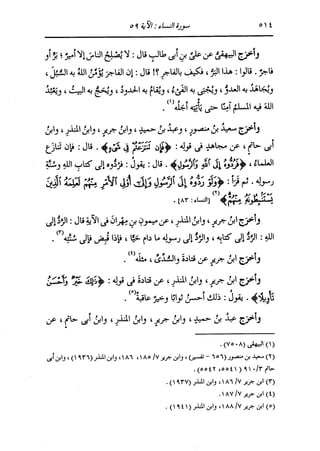 ٥١٤
سورة النساء : الآية ٥٩
وأخرج البيهقى عن علىّ بن أبى طالب قال : لا يُصلِحُ الناسَ إلا أميرٌ ؛ برٌّ أو
فاجرٌ . قالوا : هذا البَرُّ ، فكيف بالفاجرِ ؟! قال : إن الفاجرَ يُؤَمِّنُ اللهُ به السُّبُلَ ،
ويُجاهَدُ به العدوُّ ، ويُجْبَى به الفَىْءُ ، ويُقامُ به الحدودُ ، ويُحَجُّ به البيتُ ، ويَعْبُدُ
اللهَ فيه المسلمُ آمِنًا حتى يأتيَه أجلُه(١) .
وأخرَج سعيدُ بنُ منصورٍ ، وعبدُ بنُ حميدٍ ، وابنُ جريرٍ ، وابنُ المنذرِ ، وابنُ
أبى حاتمٍ ، عن مجاهدٍ فى قولِه : ﴿فَإِن تَنَازَعْتُمْ فِى شَىْءٍ﴾ . قال : فإن تنازَع
العلماءُ ، ﴿فَرُدُّوهُ إِلَى اللَّهِ وَالرَّسُولِ﴾ . قال : يقولُ : فرُدُّوه إلى كتابِ اللهِ وسُنَّةِ
رسولِه . ثم قرَأ : ﴿وَلَوْ رَدُّوهُ إِلَى الرَّسُولِ وَإِلَىٰ أُوْلِى الْأَمْرِ مِنْهُمْ لَعَلِمَهُ الَّذِينَ
يَسْتَنْبِطُونَهُ مِنْهُمْ﴾(٢) [النساء: ٨٣] .
وأخرَج ابنُ جريرٍ ، وابنُ المنذرِ ، عن ميمونِ بنِ مِهْرانَ فى الآيةِ قال : الرَّدُّ إلى
اللهِ : الرَّدُّ إلى كتابِه ، والرَّدُّ إلى رسولِه ما دام حيًّا ، فإذا قُبِض فإلى سُنَّتِه(٣) .
وأخرَج ابنُ جريرٍ عن قتادةَ والسُّدىِّ ، مثلَه(٤) .
وأخرَج ابنُ جريرٍ ، وابنُ المنذرِ ، عن قتادةَ فى قولِه : ﴿ذَٰلِكَ خَيْرٌ وَأَحْسَنُ
تَأْوِيلًا﴾ . يقولُ : ذلك أحسنُ ثوابًا وخيرٌ عاقبةً(٥) .
وأخرَج عبدُ بنُ حميدٍ ، وابنُ جريرٍ ، وابنُ المنذرِ ، وابنُ أبى حاتمٍ ، عن
(١) البيهقى (٧٥٠٨) .
(٢) سعيد بن منصور (٦٥٦ - تفسير) ، وابن جرير ٧/ ١٨٥، ١٨٦، وابن المنذر (١٩٣٦) ، وابن أبى
حاتم ٣/ ٩١٠ (٥٥٤١، ٥٥٤٢) .
(٣) ابن جرير ٧/ ١٨٦، وابن المنذر (١٩٣٧) .
(٤) ابن جرير ٧/ ١٨٧.
(٥) ابن جرير ٧/ ١٨٨، وابن المنذر (١٩٤١) .